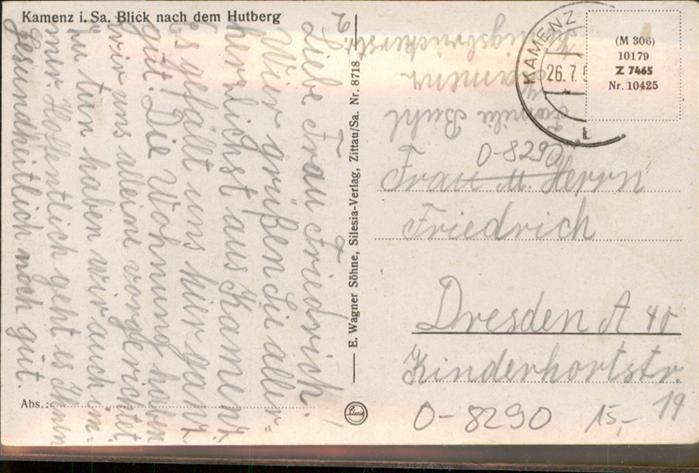 Kamenz i. Sa. Blick nach dem Hutberg
Liebe Frau Friedrich.
Wir grüßen Sie aller-
herzlichst aus Kamenz.
Es gefällt uns hier ganz
gut. Die Wohnung haben
wir uns alleine vorgerichtet
zu tun haben wir auch im-
mer. Hoffentlich geht es Ihnen
gesundheitlich noch gut.
Abs.:
E. Wagner Söhne, Silesia-Verlag, Zittau/Sa. Nr. 8718
Familie Buhl
Kamenz
Königsbrückerstr.
2
KAMENZ
26.7.5
(M 306)
10179
Z 7465
Nr. 10425
O-8290
Frau u. Herrn
Friedrich
Dresden A 40
Kinderhortstr.
19
O-8290 15,-